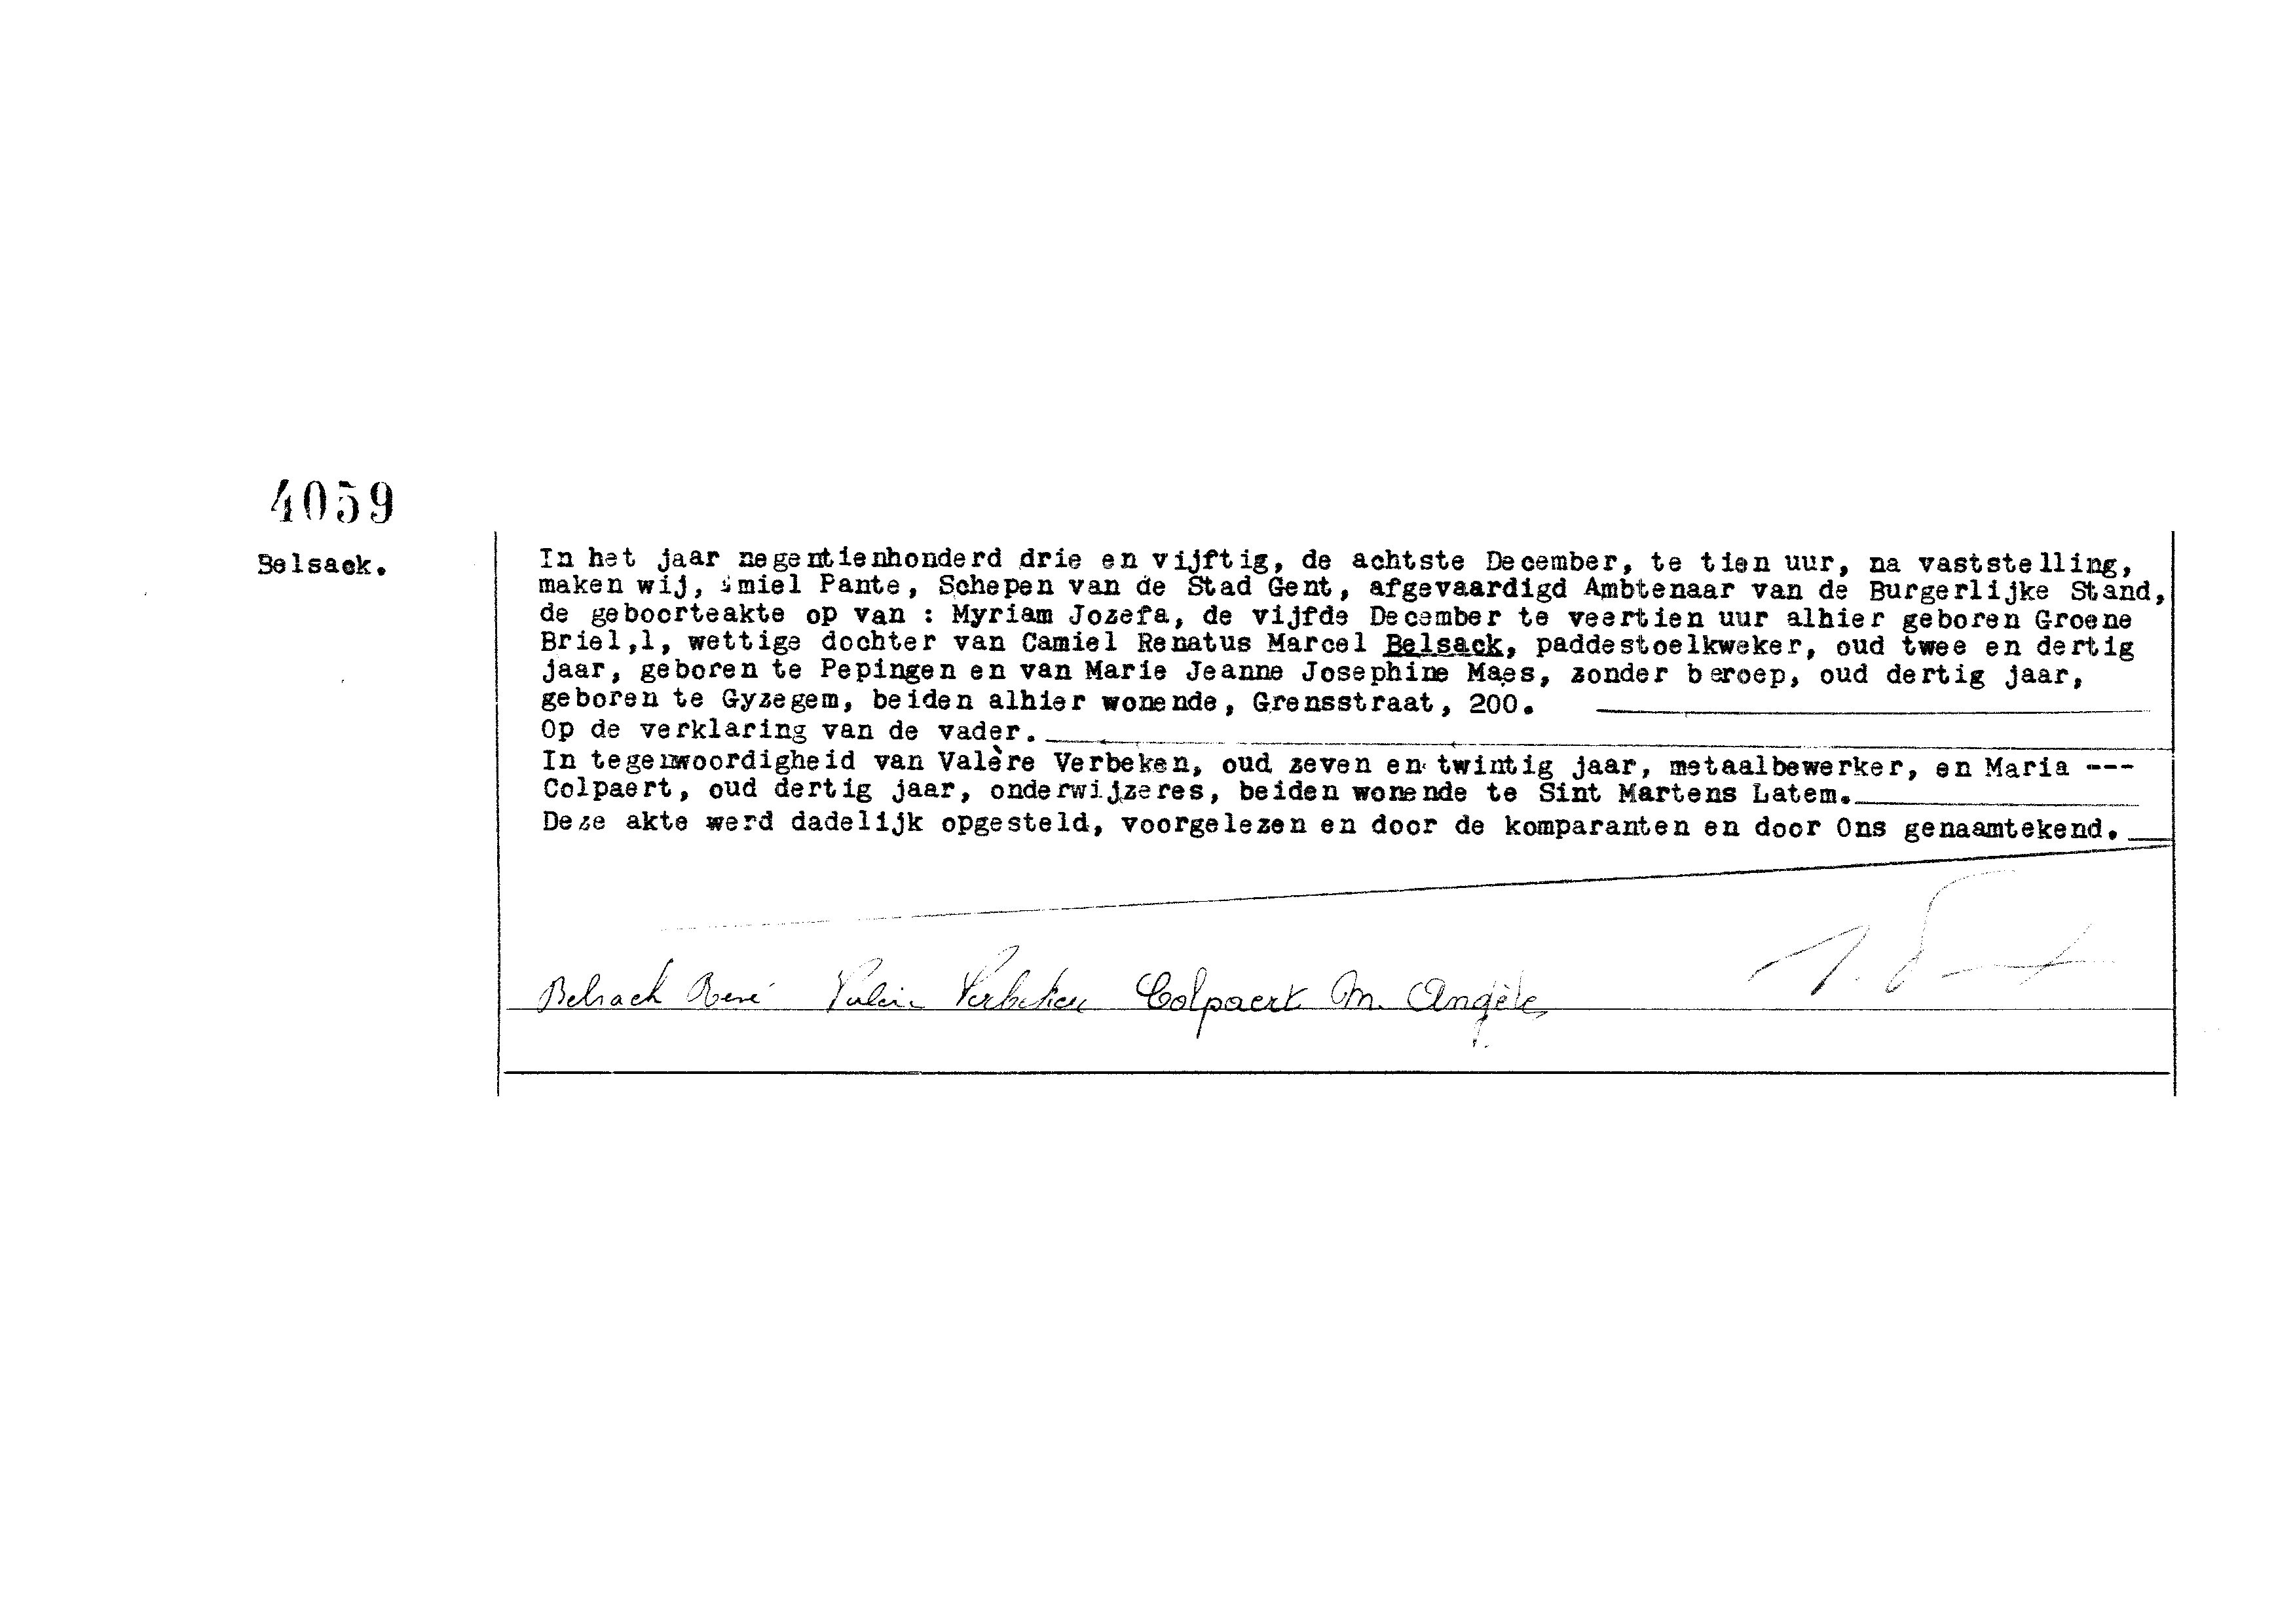 4059
Belsack.
In het jaar negentienhonderd drie en vijftig, de achtste December, te tien uur, na vaststelling,
maken wij, Emiel Pante, Schepen van de Stad Gent, afgevaardigd Ambtenaar van de Burgerlijke Stand,
de geboorteakte op van : Myriam Jozefa, de vijfde December te veertien uur alhier geboren Groene
Briel,1, wettige dochter van Camiel Renatus Marcel Belsack, paddestoelkweker, oud twee en dertig
jaar, geboren te Pepingen en van Marie Jeanne Josephine Maes, zonder beroep, oud dertig jaar,
geboren te Gyzegem, beiden alhier wonende, Grensstraat, 200.
Op de verklaring van de vader.
In tegenwoordigheid van Valère Verbeken, oud zeven en twintig jaar, metaalbewerker, en Maria ---
Colpaert, oud dertig jaar, onderwijzeres, beiden wonende te Sint Martens Latem.
Deze akte werd dadelijk opgesteld, voorgelezen en door de komparanten en door Ons genaamtekend.
Belsack René Valère Verbeken Colpaert M. Angèle